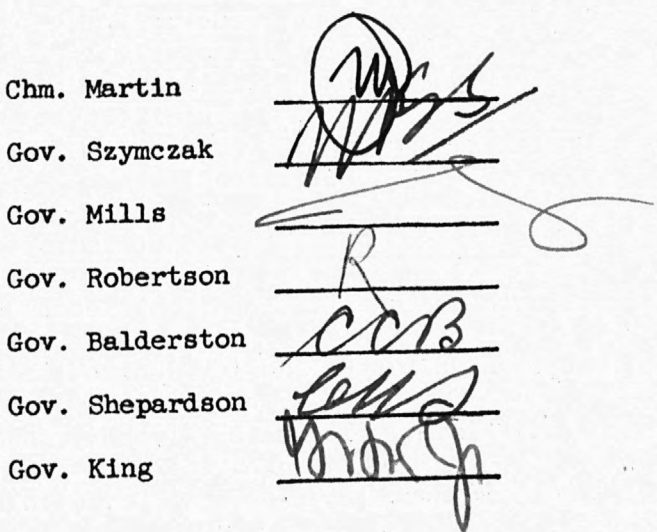 Chm. Martin M
Gov. Szymczak
Gov. Mills
Gov. Robertson R
Gov. Balderston CCB
Gov. Shepardson
Gov. King